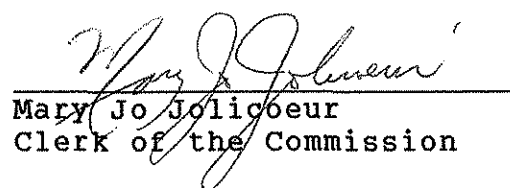 Mary Jo Jolicoeur
Mary Jo Jolicoeur
Clerk of the Commission